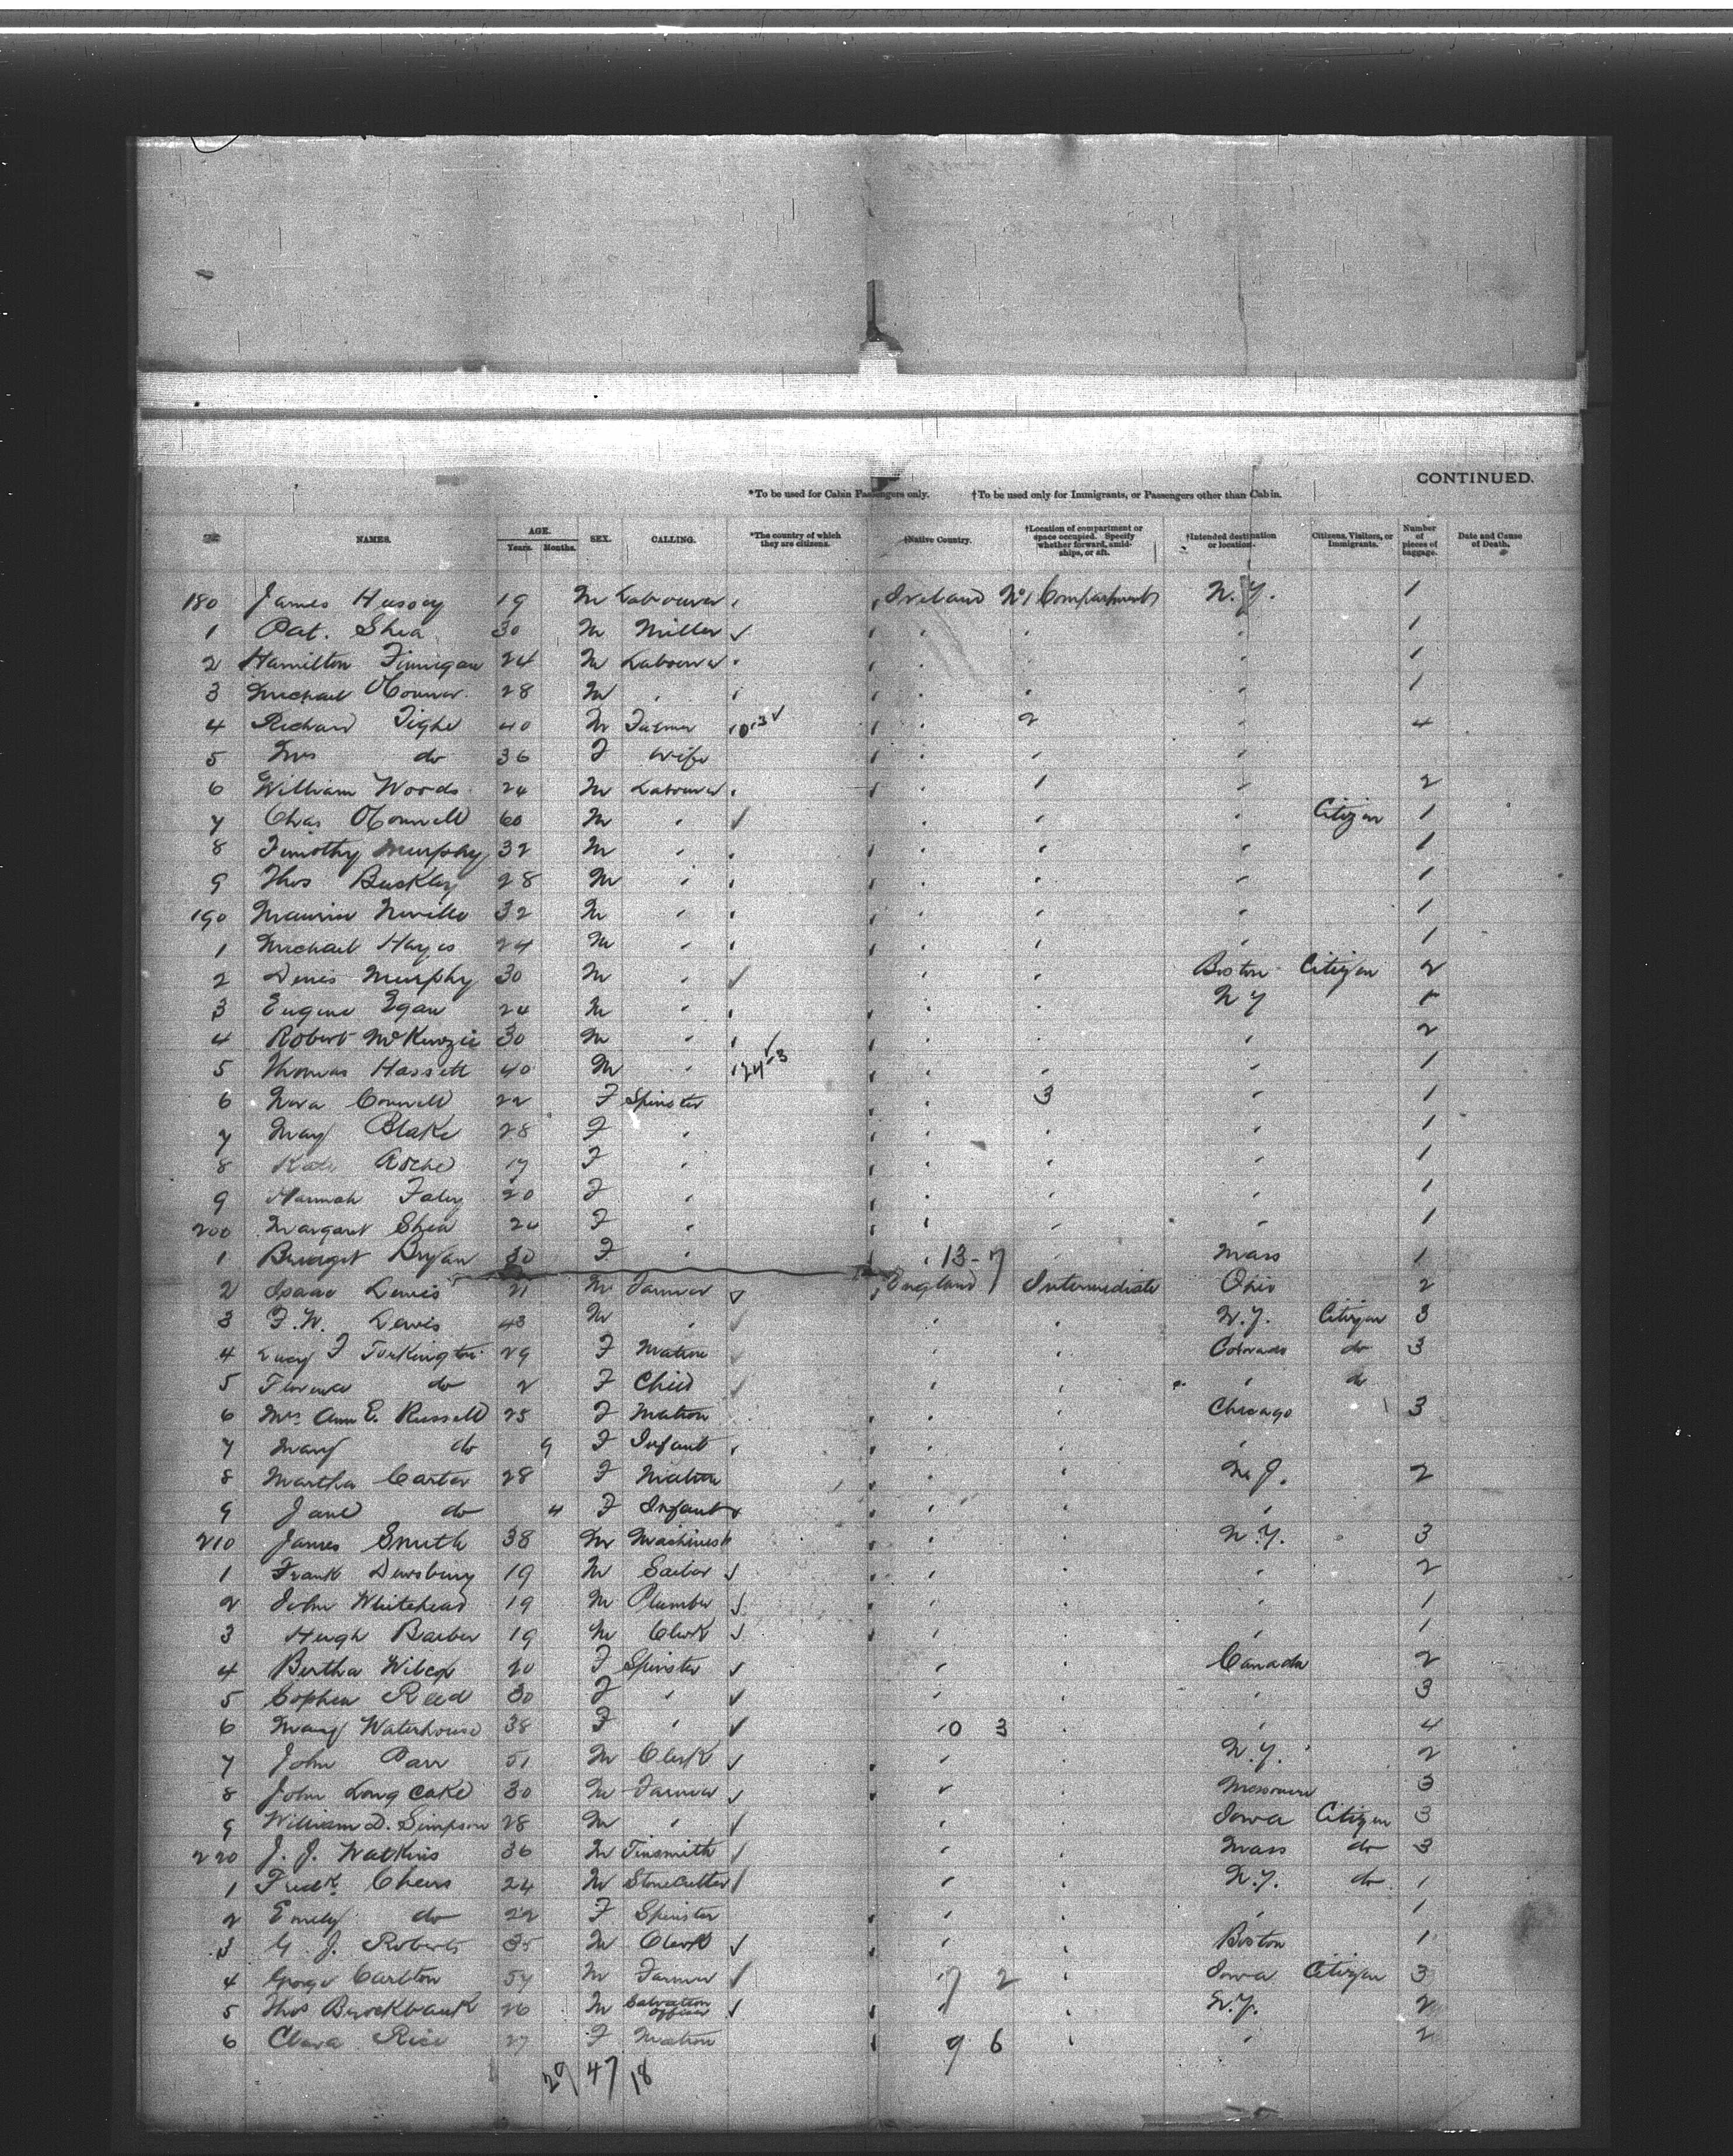 CONTINUED.
*To be used for Cabin Passengers only. †To be used only for Immigrants, or Passengers other than Cabin.
NAMES. AGE. Years. Months. SEX. CALLING. *The country of which they are citizens. †Native Country. †Location of compartment or space occupied. Specify whether forward, amidships, or aft. †Intended destination or location. Citizens, Visitors, or Immigrants. Number of pieces of baggage. Date and Cause of Death.
180 James Hussey 19 M Labourer Ireland No 1 Compartment N.Y. 1
1 Pat. Shea 30 M Miller " " " 1
2 Hamilton Finnigan 24 M Labourer " " " 1
3 Michael O'Connor 28 M " " " " 1
4 Richard Tighe 40 M Farmer 10-3 " 2 " 4
5 Mrs do 36 F Wife " " "
6 William Woods 24 M Labourer " 1 " 2
7 Chas O'Connell 60 M " " " " Citizen 1
8 Timothy Murphy 32 M " " " " 1
9 Thos Buckley 28 M " " " " 1
190 Maurice Neville 32 M " " " " 1
1 Michael Hayes 24 M " " " " 1
2 Denis Murphy 30 M " " " Boston Citizen 2
3 Eugene Egan 24 M " " " N Y 1
4 Robert McKenzie 30 M " " " " 2
5 Thomas Hassett 40 M " 24-3 " " " 1
6 Nora Connell 22 F Spinster " 3 " 1
7 May Blake 28 F " " " " 1
8 Kate Roche 17 F " " " " 1
9 Hannah Foley 20 F " " " " 1
200 Margaret Shea 20 F " " " " 1
1 Bridget Bryan 30 F " " 13-7 " Mass 1
2 Isaac Lewis 21 M Farmer England Intermediate Ohio 2
3 F.W. Lewis 43 M " " " N.Y. Citizen 3
4 Lucy F Turkington 29 F Matron " " Colorado do 3
5 Florence do 2 F Child " " " do
6 Mrs Ann E. Russell 25 F Matron " " Chicago 3
7 Mary do 9 F Infant " " "
8 Martha Carter 28 F Matron " " N.J. 2
9 Jane do 4 F Infant " " "
210 James Smith 38 M Machinist " " N.Y. 3
1 Frank Dewsbury 19 M Sailor " " " 2
2 John Whitehead 19 M Plumber " " " 1
3 Hugh Barber 19 M Clerk " " " 1
4 Bertha Wilcox 20 F Spinster " " Canada 2
5 Sophia Reed 30 F " " " " 3
6 Mary Waterhouse 38 F " 10 3 " " 4
7 John Parr 51 M Clerk " " N.Y. 2
8 John Longcake 30 M Farmer " " Missouri 3
9 William D. Simpson 28 M " " " Iowa Citizen 3
220 J. J. Watkins 36 M Tinsmith " " Mass do 3
1 Fredk Cheers 24 M Stonecutter " " N.Y. do 1
2 Emily do 22 F Spinster " " " 1
3 G. J. Roberts 35 M Clerk " " Boston 1
4 George Carlton 54 M Farmer 7 2 " Iowa Citizen 3
5 Thos Brockbank 26 M Salvation Officer " N.Y. 2
6 Clara Rice 27 F Matron 9 6 " " 2
29/47/18